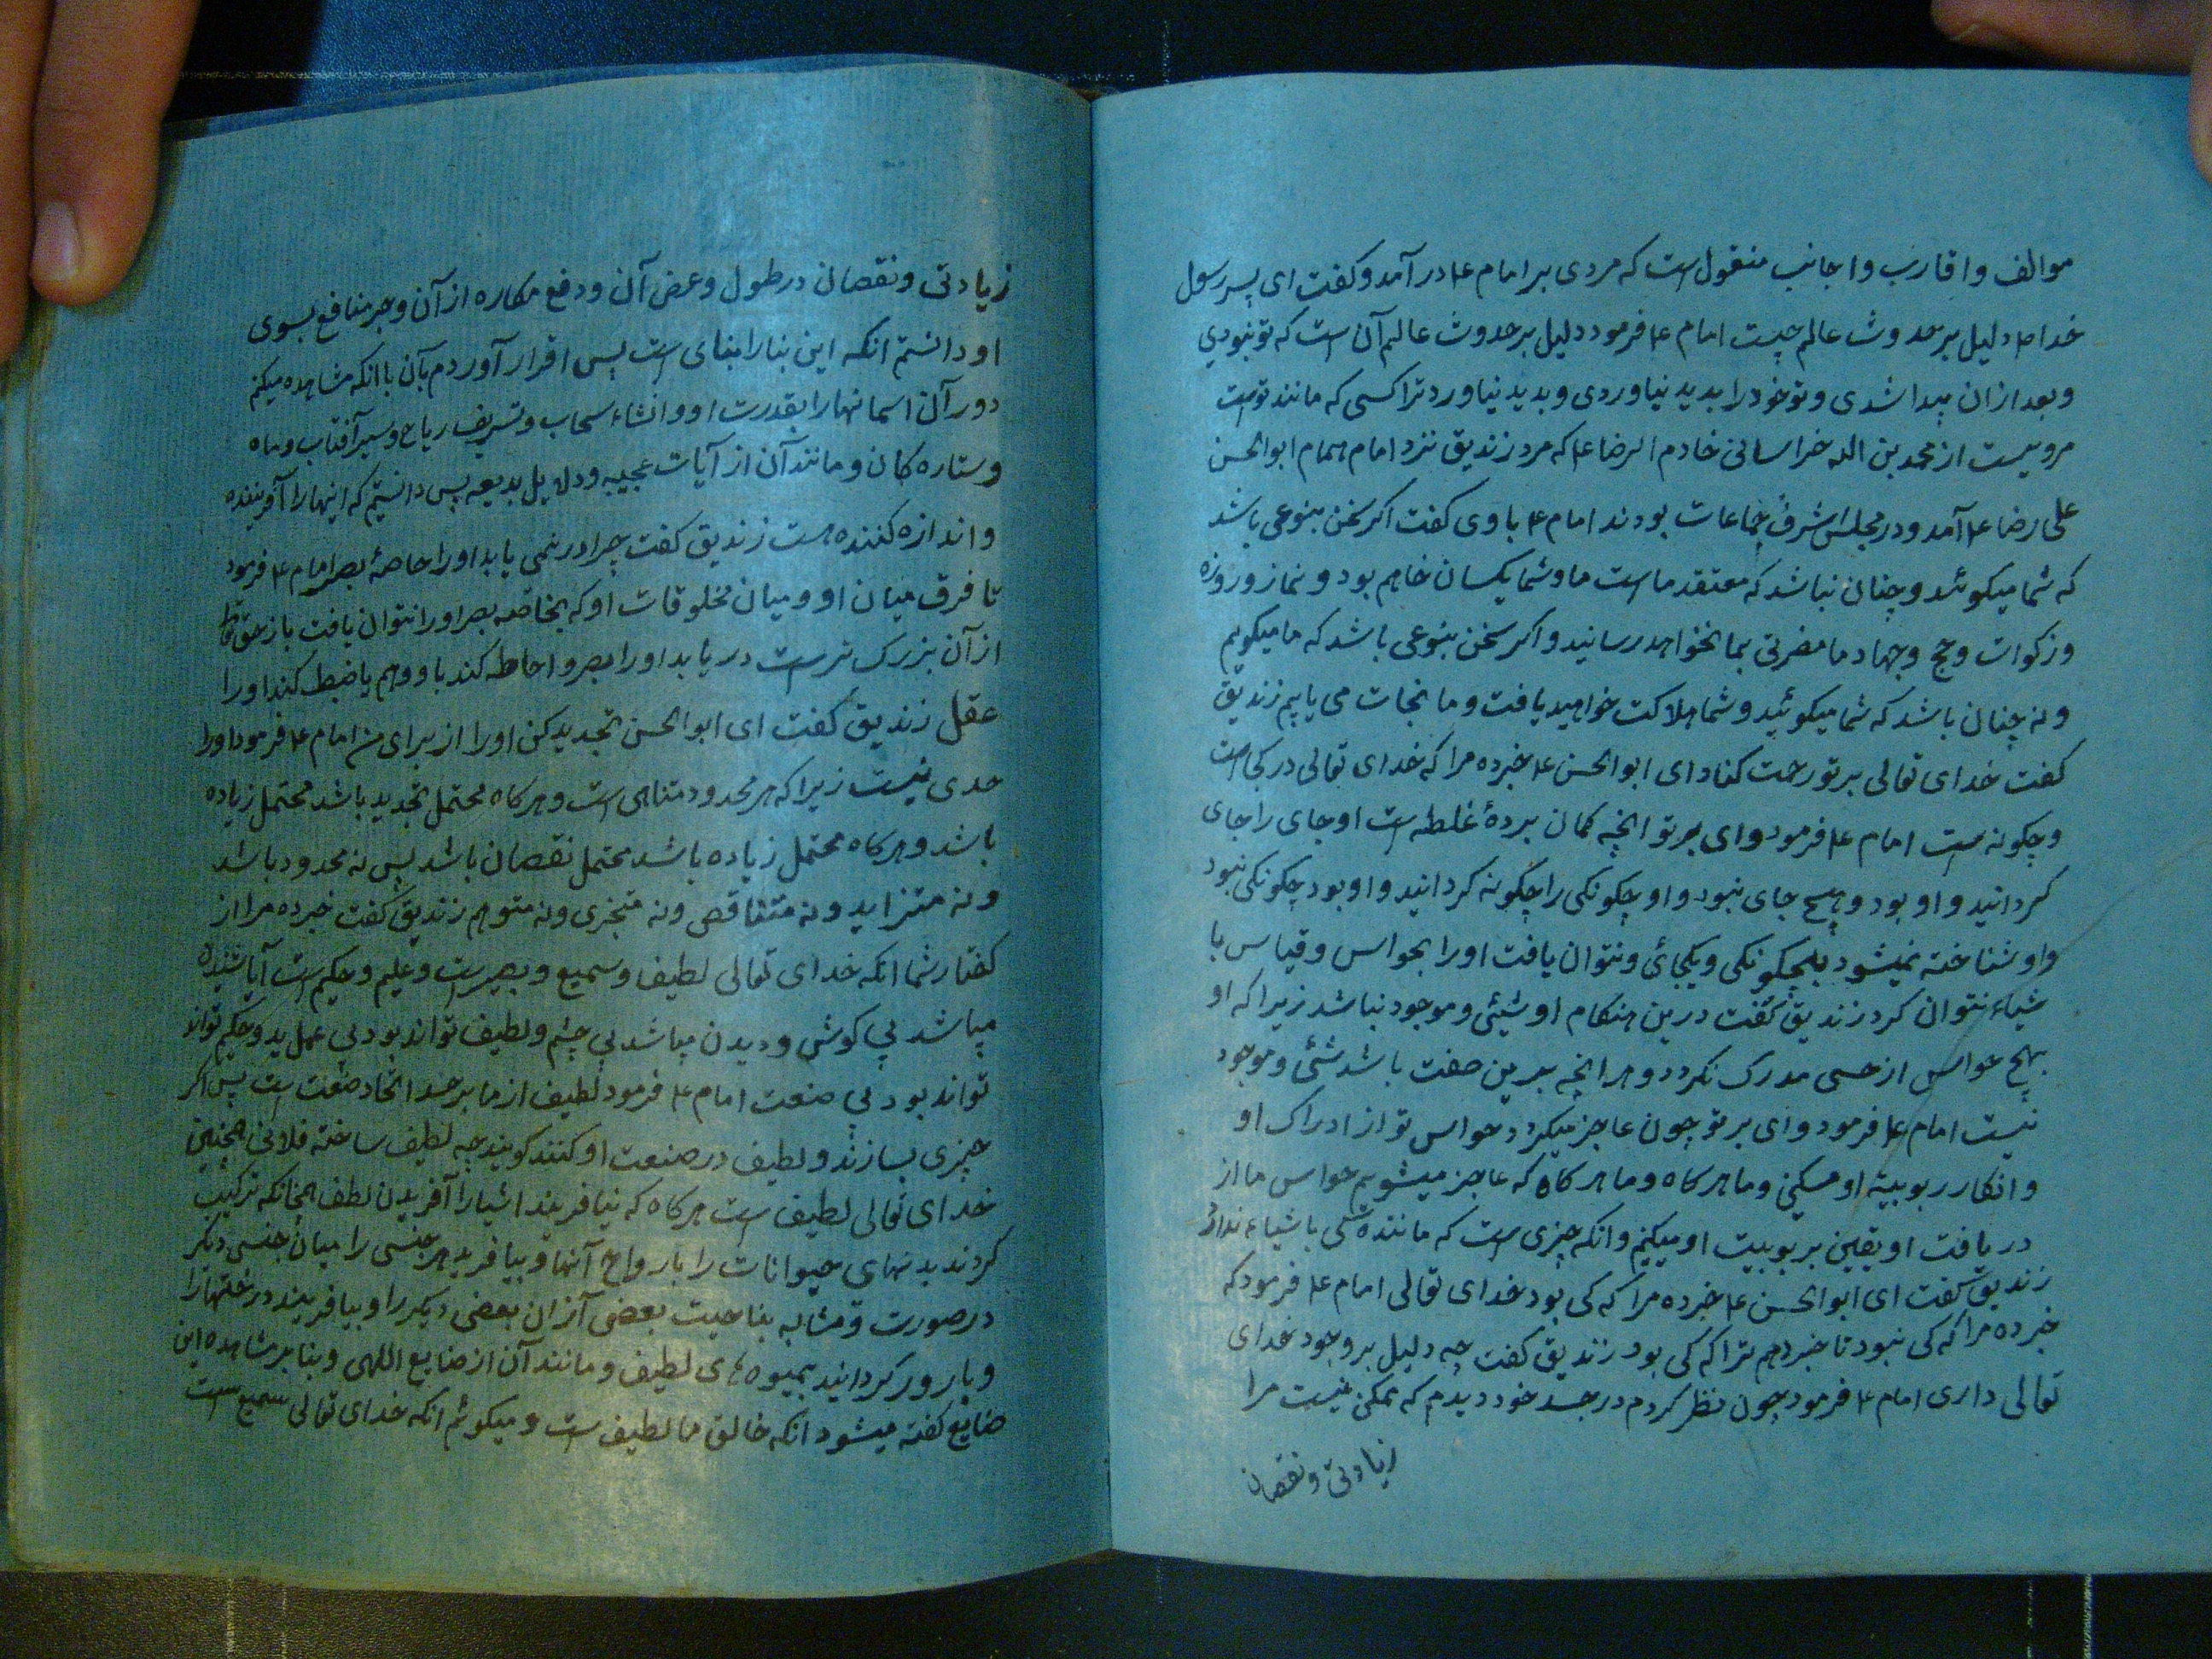 موالف و اقارب و اجانب منقول است که مردی بر امام ع در آمد و کفت ای پسر رسول
خدا ص دلیل بر حدوث عالم چیست امام ع فرمود دلیل بر حدوث عالم آن است که تو نبودي
و بعد از ان پیدا شدی و تو خود را بدید نیاوردی و بدید نیاورد ترا کسی که مانند توست
مرویست از محمد بن الله خراسانی خادم الرضا ع که مرد زندیق نزد امام همام ابو الحسن
علی رضا ع آمد و در مجلس اشرف جماعات بودند امام ع با وی کفت اکر سخن بنوعی باشد
که شما میکوئید و چنان نباشد که معتقد ماست ما و شما یکسان خاهم بود و نماز و روزه
و زکوات و حج و جهاد ما مضرتی بما نخواهد رسانید و اکر سخن بنوعی باشد که ما میکویم
و نه چنان باشد که شما میکوئید و شما هلاکت خواهید یافت و ما نجات می یابیم زندیق
کفت خدای تعالی بر تو رحمت کناد ای ابو الحسن ع خبر ده مرا که خدای تعالی در کجاست
و چکونه ست امام ع فرمود وای بر تو انچه کمان بردهٔ غلطه ست او جای را جای
کردانید و او بود و هیچ جای نبود و او چکونکی را چکونه کردانید و او بود چکونکی نبود
و او شناخته نمیشود بچکونکی و بکجائی و نتوان یافت او را بحواس و قیاس با
شیاء نتوان کرد زندیق کفت درین هنکام او شیئی و موجود نباشد زیرا که او
بهیچ حواس از حسی مدرک نکردد و هر انچه برین صفت باشد شئی و موجود
نیست امام ع فرمود وای بر تو چون عاجز میکردد حواس تو از ادراک او
و انکار ربوبیة او میکنی و ما هرکاه و ما هرکاه که عاجز میشویم حواس ما از
دریافت او یقین بربوبیت او میکنیم و انکه چیزی است که مانندهکی باشیاء ندارد
زندیق کفت ای ابو الحسن ع خبر ده مرا که کی بود خدای تعالی امام ع فرمود که
خبر ده مرا که کی نبود تا خبر دهم ترا که کی بود زندیق کفت چه دلیل بر وجود خدای
تعالی داری امام ع فرمود چون نظر کردم در جسد خود دیدم که ممکن نیست مرا
زیادتی و نقصان
زیادتی و نقصان در طول و عرض آن و دفع مکاره از آن و جر منافع بسوی
او دانستم انکه این بنا را بنای است پس اقرار آوردم بآن با انکه مشاهده میکنم
دور آن اسمانها را بقدرت او و انشاء سحاب و تسریف ریاح و سیر آفتاب و ماه
و ستاره کان و مانند آن از آیات عجیبه و دلایل بدیعه پس دانستم که اینها را آفریننده
و اندازه کننده هست زندیق کفت چرا در نمی یابد او را حاصهٔ بصر امام ع فرمود
تا فرق میان او و میان مخلوقات او که بخاصه بصر او را نتوان یافت باز حق تعالی
از آن بزرک ترست در یابد او را بصر و احاطه کند باو وهم یا ضبط کند او را
عقل زندیق کفت ای ابو الحسن تجدید کن او را از برای من امام ع فرمود او را
حدی نیست زیرا که هر محدود متناهی است و هرکاه محتمل تجدید باشد محتمل زیاده
باشد و هرکاه محتمل زیاده باشد محتمل نقصان باشد پس نه محدود باشد
و نه متزاید و نه متناقص و نه متجزی و نه متوهم زندیق کفت خبر ده مرا از
کفتار شما انکه خدای تعالی لطیف و سمیع و بصیرست و علیم و حکیم ست آیا شنیده
میباشد بی کوش و دیدن میباشد بی چشم و لطیف تواند بود بی عمل ید و حکیم تواند
تواند بود بی صنعت امام ع فرمود لطیف از ما بر حد اتخاد صنعت است پس اکر
چیزی بسازند و لطیف در صنعت او کنند کویند چه لطیف ساخته فلانی همچنین
خدای تعالی لطیف است هرکاه که نیافریند اشیا را آفریدن لطف همچنانکه ترکیب
کردند بدنهای حیوانات را بارواح آنها و بیافرید هر جنسی را میان جنسی دیکر
در صورت و مشابه بناحیت بعضی آز ان بعضی دیکر را و بیافریند درختها را
و بارور کردانید بمیوه های لطیف و مانند آن از صنایع اللهی و بنابر مشاهده این
صنایع کفته میشود انکه خالق ما لطیف ست و میکوئم انکه خدای تعالی سمیع ست